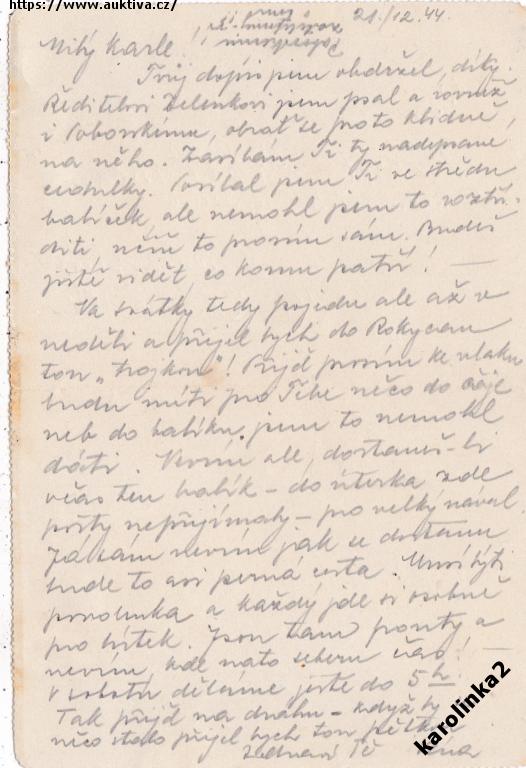 https://www.auktiva.cz/
21./12.44.
Milý Karle
Tvůj dopis jsem obdržel, díky.
Řediteli jsem psal a rovněž
i obrať se proto klidně
na něho. Zasílám Ti ty nadepsané
cedulky. Posílal jsem Ti ve středu
balíček, ale nemohl jsem to roztří-
diti, učiň to prosím sám. Budeš
jistě vidět, co komu patří! —
Ve svátky tedy pojedu ale až v
neděli a přijel bych do Rokycan
ton „trojkou"! Přijď prosím ke vlaku
budu míti pro Tebe něco do
neb do balíku, jsem to nemohl
dáti. Nevím ale, dostaneš-li
včas ten balík – do úterka zde
pošty nepřijímaly – pro velký nával
Já sám nevím jak se dostanu
bude to asi perná cesta. Musí býti
povolenka a každý jde si osobně
pro lístek. Jsou tam fronty a
nevím, kde na to seberu čas!
V sobotu děláme ještě do 5 h
Tak přijď na dráhu – když by
něco stalo přijel bych ton pětkou
Zdraví Tě
karolinka2